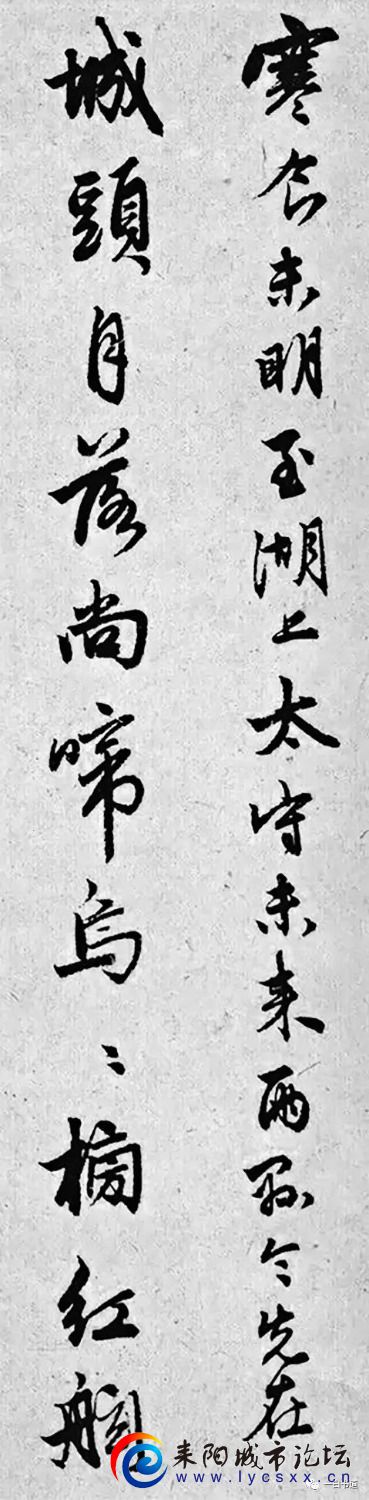 寒食未明至湖上太守未来兩縣令先在
城頭月落尚啼烏〻榜紅舷
耒阳城市论坛
www.lycsxx.cn